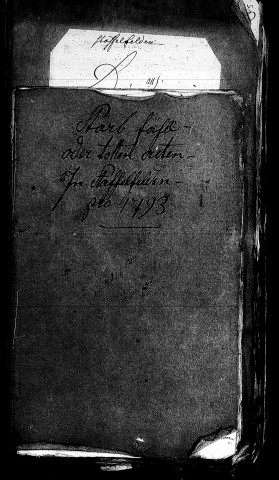 Staffelfelden
Stärb fäll-
oder totten acten-
In Staffelfelden-
pro 1793